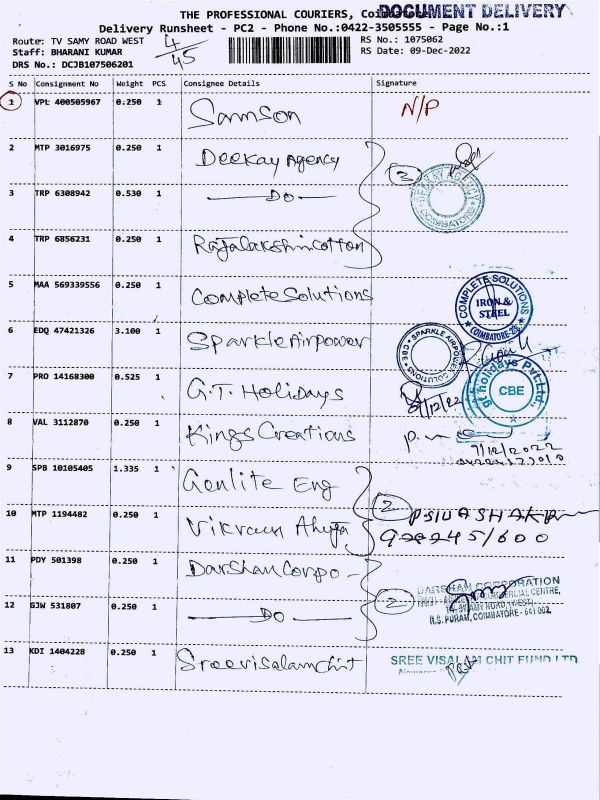 DOCUMENT DELIVERY
THE PROFESSIONAL COURIERS,
Delivery Runsheet - PC2 - Phone No.:0422-3505555 - Page No.:1
Route: TV SAMY ROAD WEST
4/45
RS No.: 1075062
Staff: BHARANI KUMAR
RS Date: 09-Dec-2022
DRS No.: DCJB107506201
S No Consignment No Weight PCS Consignee Details Signature
1 VPL 400505967 0.250 1 Samson N/P
2 MTP 3016975 0.250 1 Deekay Agency 3
DEEKAY AGENCY COIMBATORE
3 TRP 6308942 0.530 1 — DO —
4 TRP 6856231 0.250 1 Rajalakshmi cotton
5 MAA 569339556 0.250 1 Complete Solutions
COMPLETE SOLUTIONS IRON & STEEL COIMBATORE
6 EDQ 47421326 3.100 1 Sparkle Airpower
SPARKLE AIRPOWER SOLUTIONS CBE
7 PRO 14168300 0.525 1 G.T. Holidays
gt holidays Pvt.Ltd. CBE
8 VAL 3112870 0.250 1 Kings Creations
9/12/2022
9 SPB 10105405 1.335 1 Genlite Eng 2
10 MTP 1194482 0.250 1 Vikram Ahuja
11 PDY 501398 0.250 1 Darshan Corpo - 2
DARSHAN CORPORATION
COMMERCIAL CENTRE,
R.S. PURAM, COIMBATORE - 641 002.
12 GJW 531807 0.250 1 — DO —
13 KDI 1404228 0.250 1 Sreevisalam chit
SREE VISALAM CHIT FUND LTD